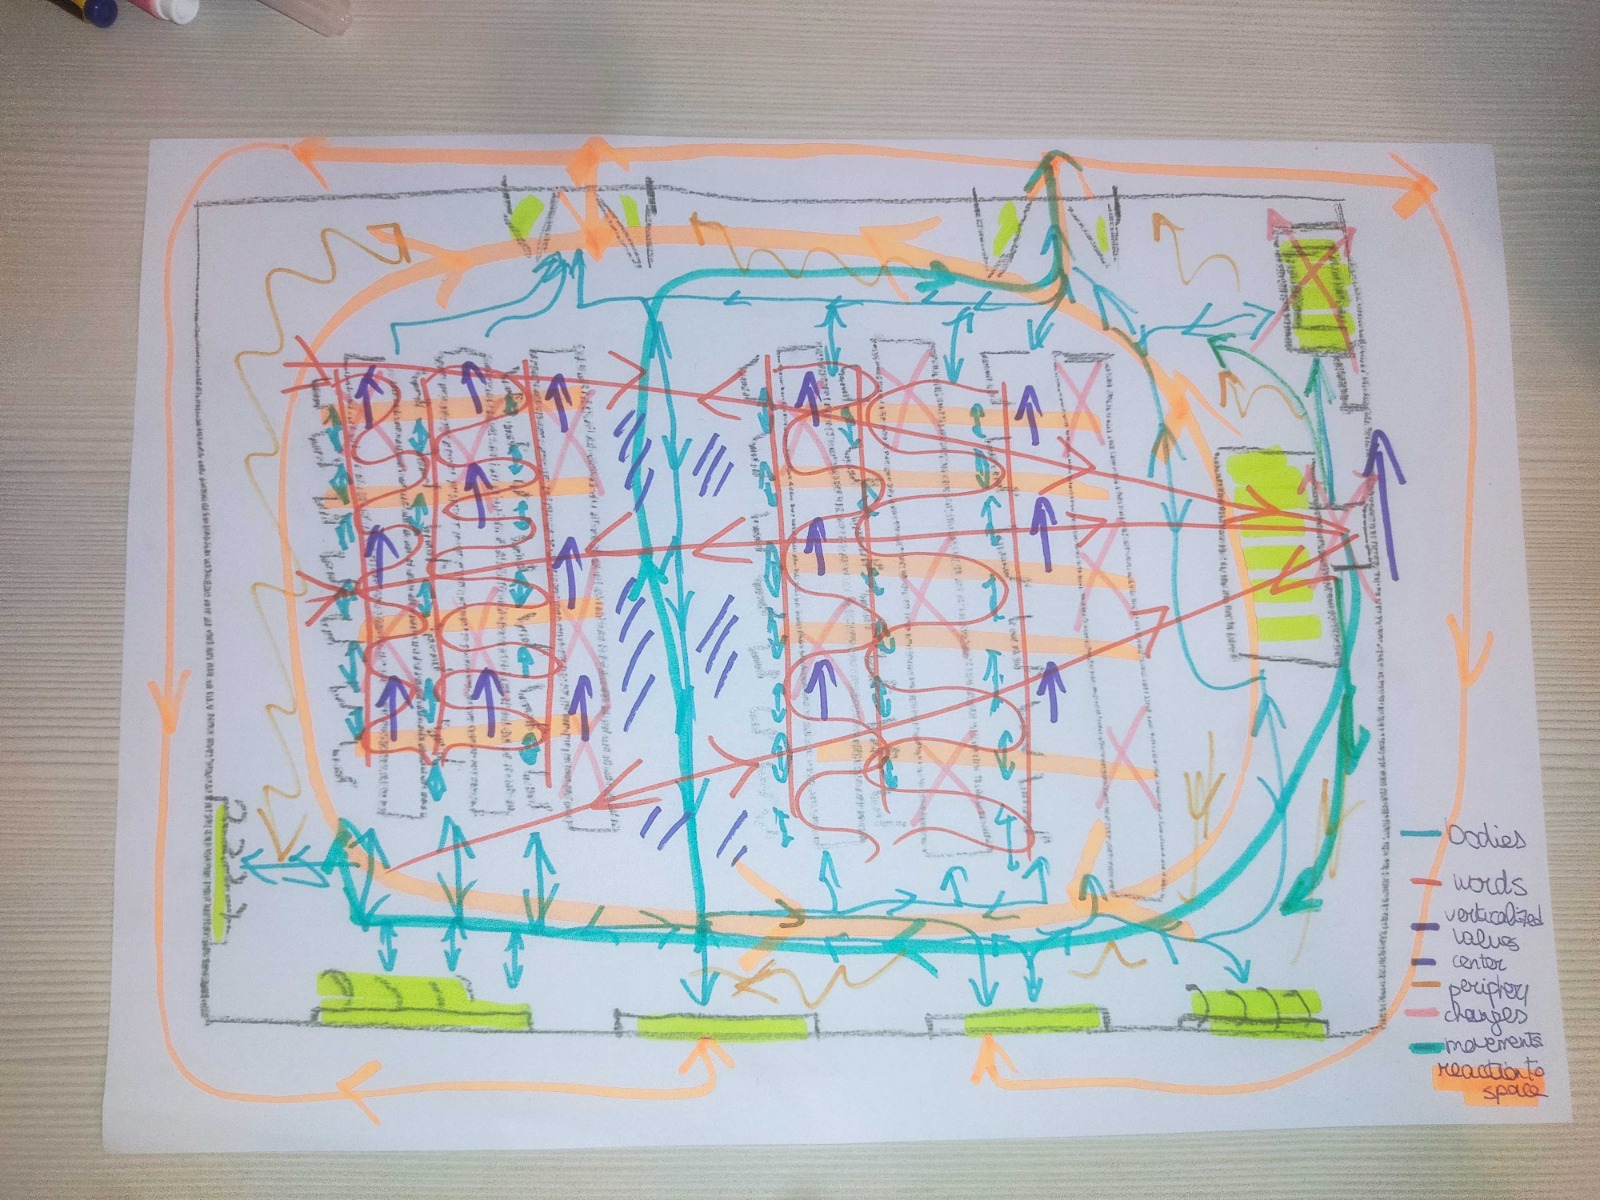 bodies
words
verticalized
values
center
periphery
changes
movements
reaction to
space